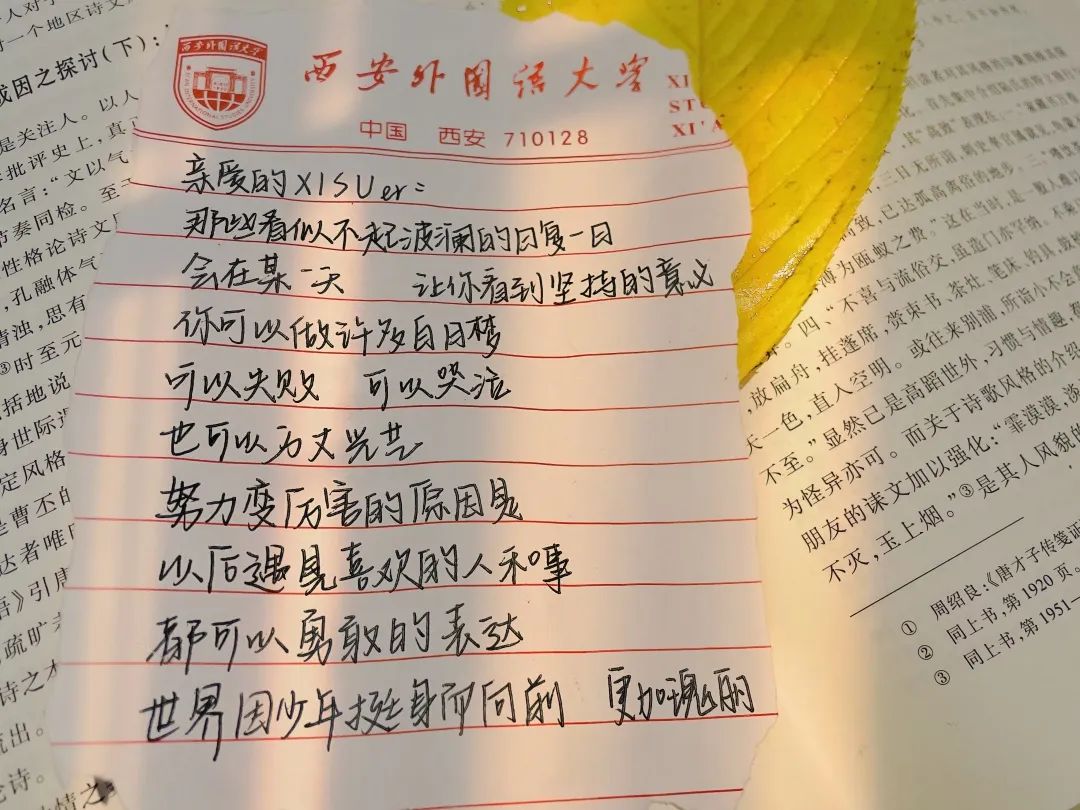 西安外国语大学
中国 西安 710128
亲爱的XISUer:
那些看似不起波澜的日复一日
会在某一天 让你看到坚持的意义
你可以做许多白日梦
可以失败 可以哭泣
也可以万丈光芒
努力变厉害的原因是
以后遇见喜欢的人和事
都可以勇敢的表达
世界因少年挺身而向前 更加瑰丽
成因之探讨(下):
是关注人。以人
批评史上,真正
名言:“文以气
节奏同检。至于
性格论诗文
,孔融体气
清浊,思有
③时至元
括地说
身世际遇
定风格
是曹丕的
达者唯
语》引唐
疏旷
诗之本
流出。
论诗。
情之
致,已达孤高离俗的地步。三
薄为瓯蚁之费。”这在当时,是一般人难以
。四、“不喜与流俗交,虽造门亦罕纳。不乘
,放扁舟,挂蓬席,赍束书、茶灶、笔床、钓具,鼓棹
天一色,直入空明。或往来别浦,所诣小不会
不至。”显然已是高蹈世外,习惯与情趣,都
为怪异亦可。而关于诗歌风格的介绍
朋友的诔文加以强化:“霏漠漠,淡
不灭,玉上烟。”③是其人风貌的
① 周绍良:《唐才子传笺证
② 同上书,第1920页。
③ 同上书,第1951—